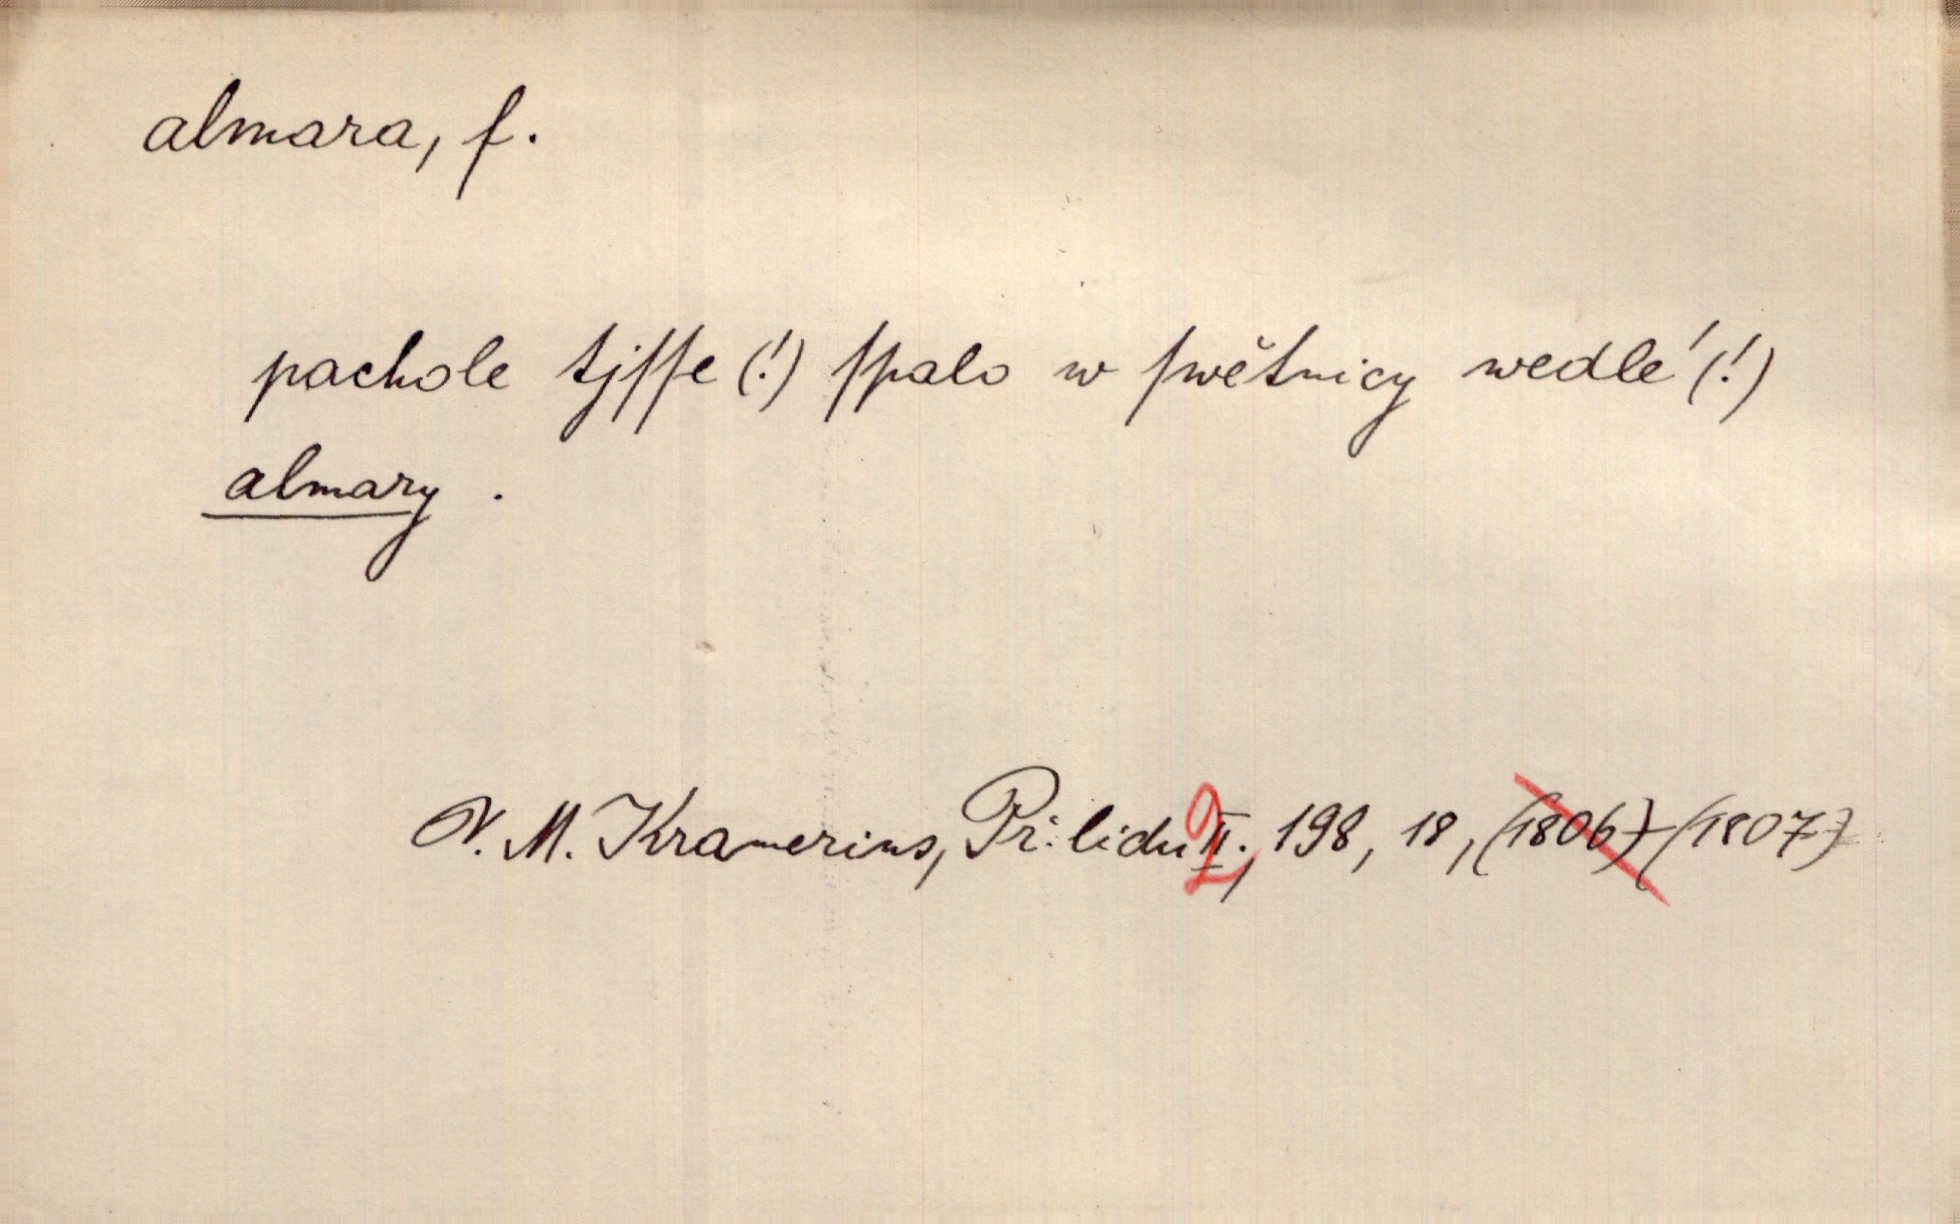 almara, f.
pachole tjſſe (!) ſpalo w ſwětnicy wedlé (!)
almary.
V. M. Kramerius, Př. lidu II., 2 198, 18, (1806) (1807)